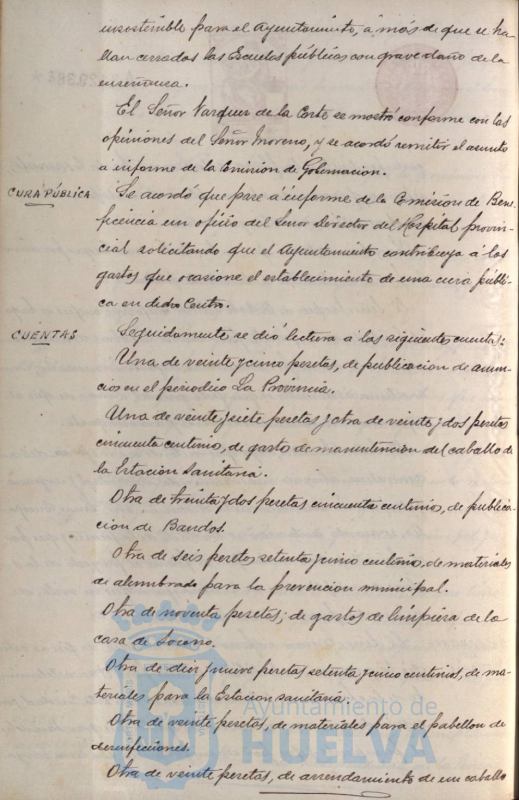 insostenible para el Ayuntamiento, á más de que se ha-
llan cerradas las Escuelas públicas con grave daño de la
enseñanza.
El Señor Vazquez de la Corte se mostró conforme con las
opiniones del Señor Moreno, y se acordó remitir el asunto
á informe de la Comision de Gobernacion.
CURA PÚBLICA
Se acordó que pase á informe de la Comision de Bene-
ficencia un oficio del Señor Director del Hospital provin-
cial solicitando que el Ayuntamiento contribuya á los
gastos que ocasione el establecimiento de una cura públi-
ca en dicho Centro.
CUENTAS
Seguidamente se dió lectura á las siguientes cuentas:
Una de veinte y cinco pesetas, de publicacion de anun-
cios en el periodico La Provincia.
Una de veinte y siete pesetas y otra de veinte y dos pesetas
cincuenta centimos, de gastos de manutención del caballo de
la Estacion Sanitaria.
Otra de treinta y dos pesetas cincuenta centimos, de publica-
cion de Bandos.
Otra de seis pesetas setenta y cinco centimos, de materiales
de alumbrado para la prevencion municipal.
Otra de noventa pesetas, de gastos de limpieza de la
casa de Socorro.
Otra de diez y nueve pesetas setenta y cinco centimos, de ma-
teriales para la Estacion sanitaria.
Otra de veinte pesetas, de materiales para el pabellon de
desinfecciones.
Otra de veinte pesetas, de arrendamiento de un caballo
Ayuntamiento de
HUELVA